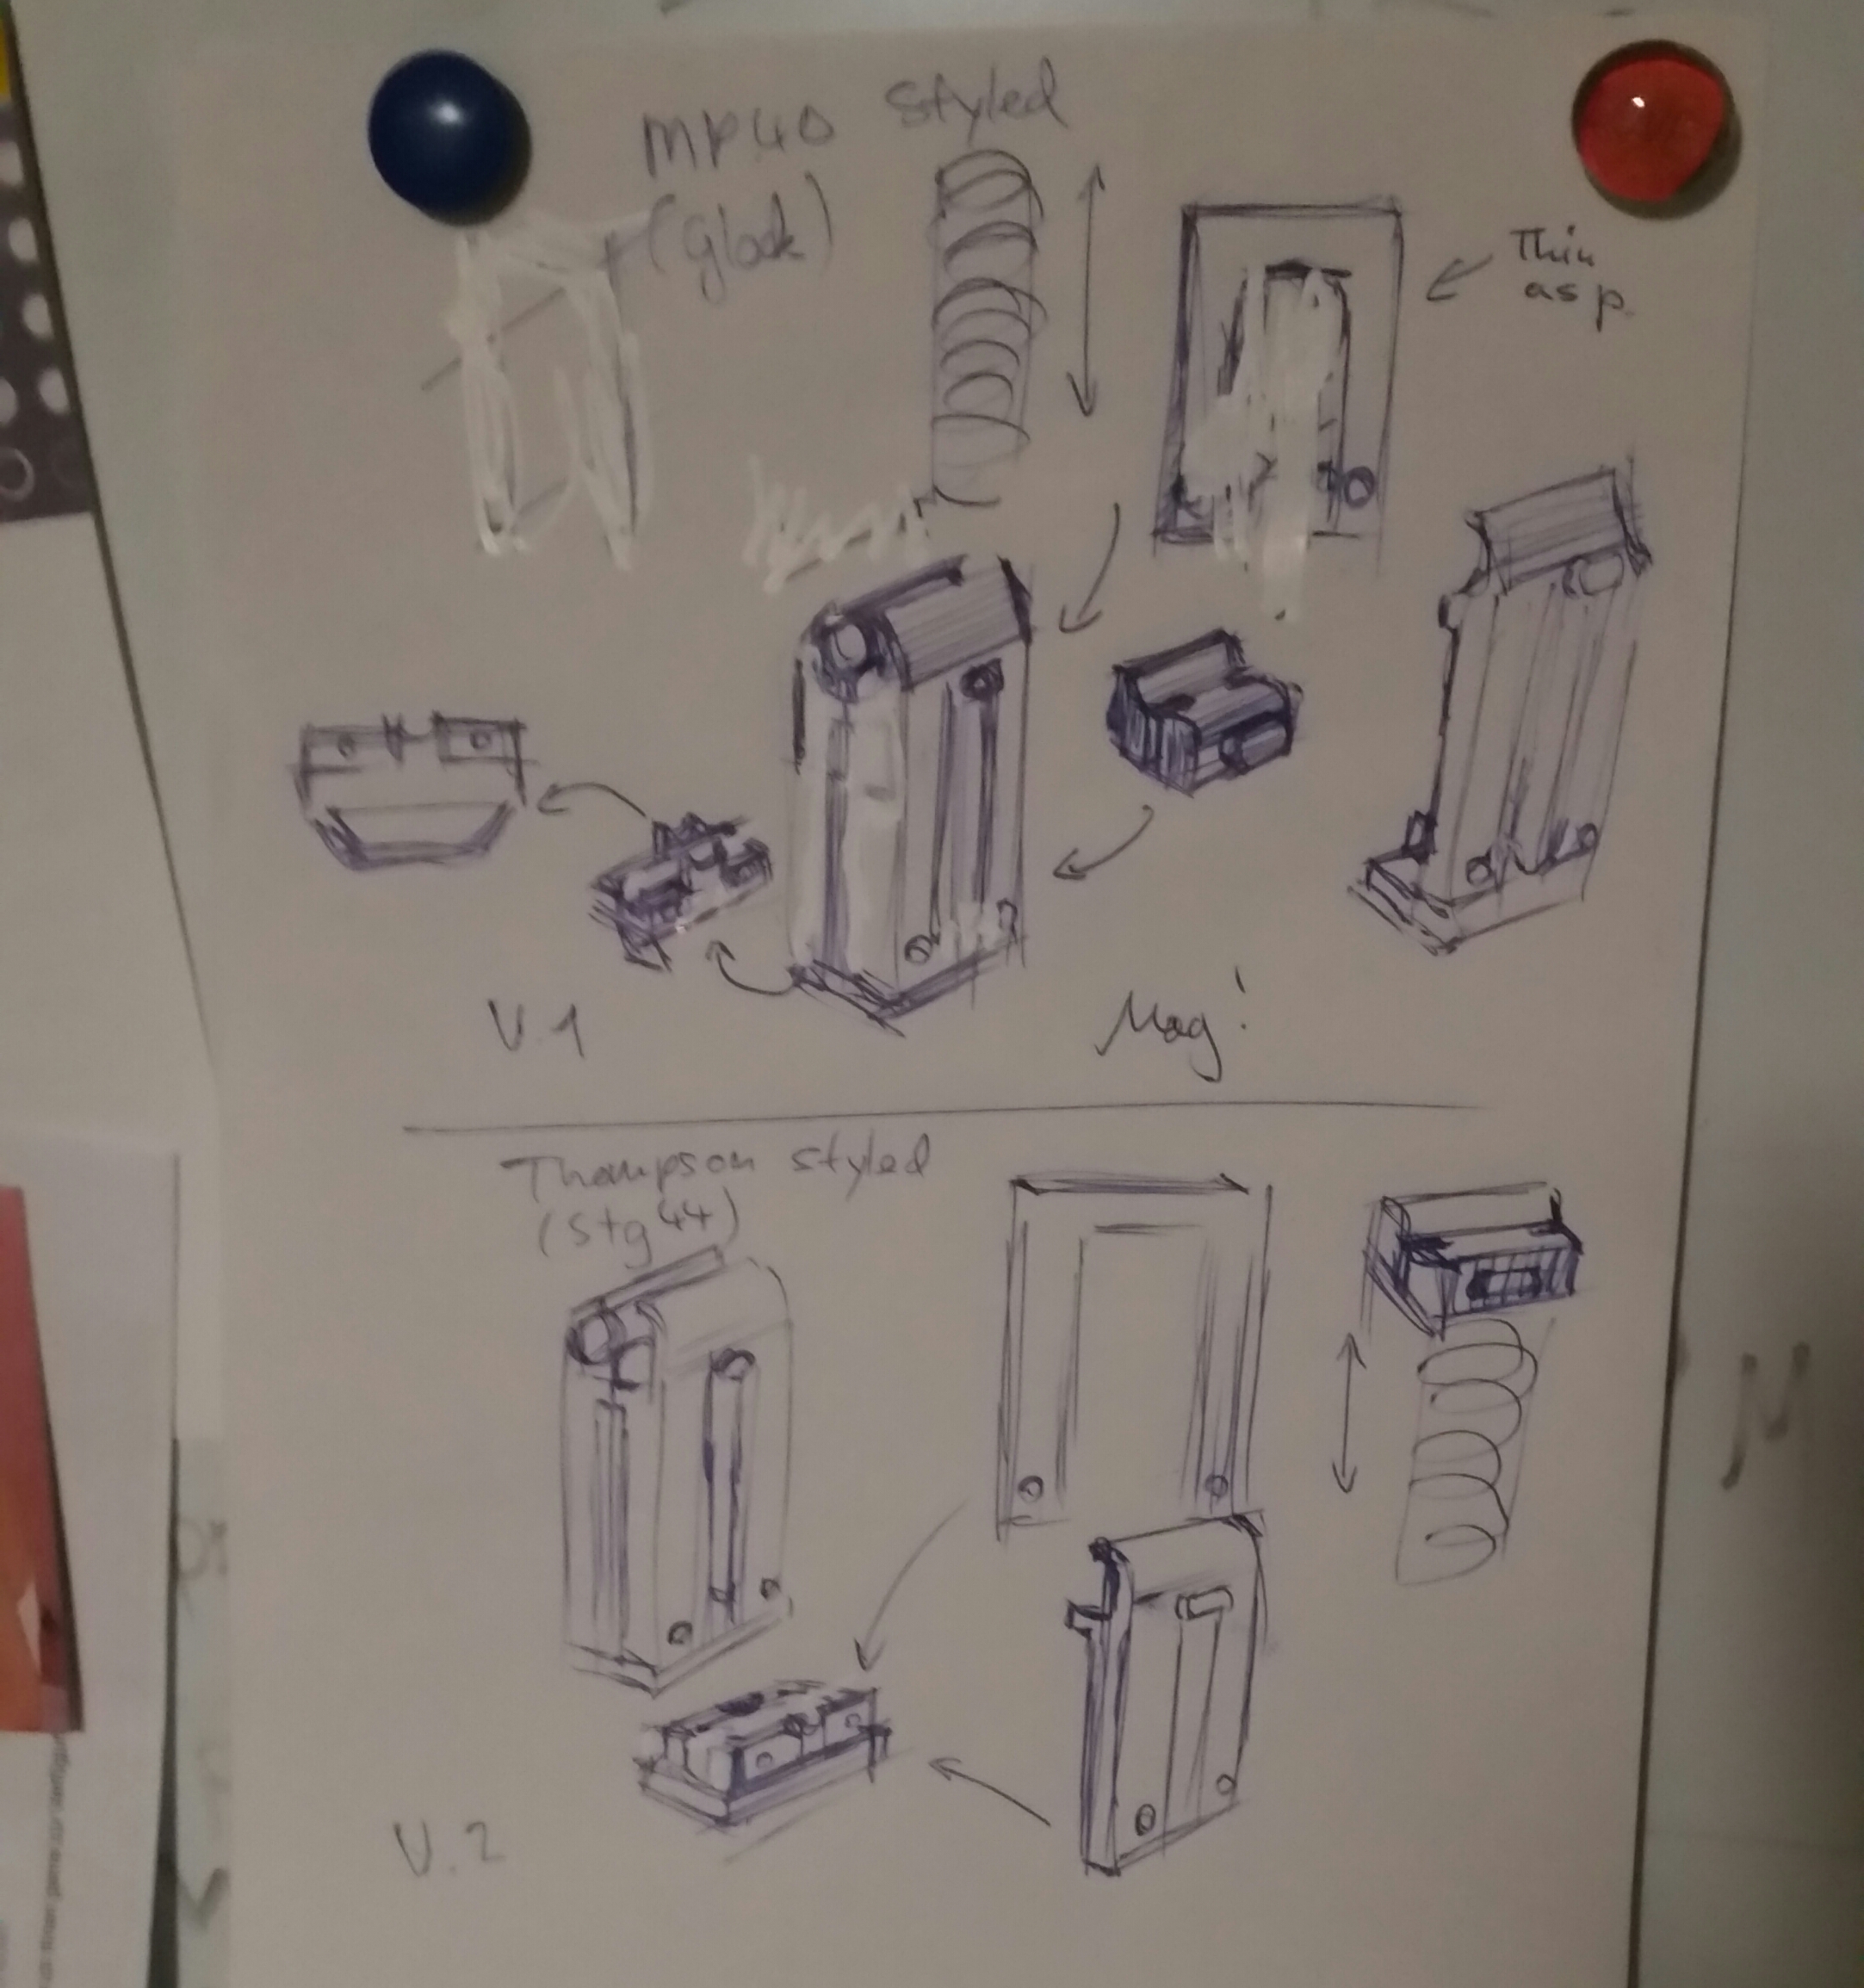 MP40 Styled
(Glock)
Thin
as p.
V.1
Mag!
Thompson styled
(Stg 44)
V.2
M